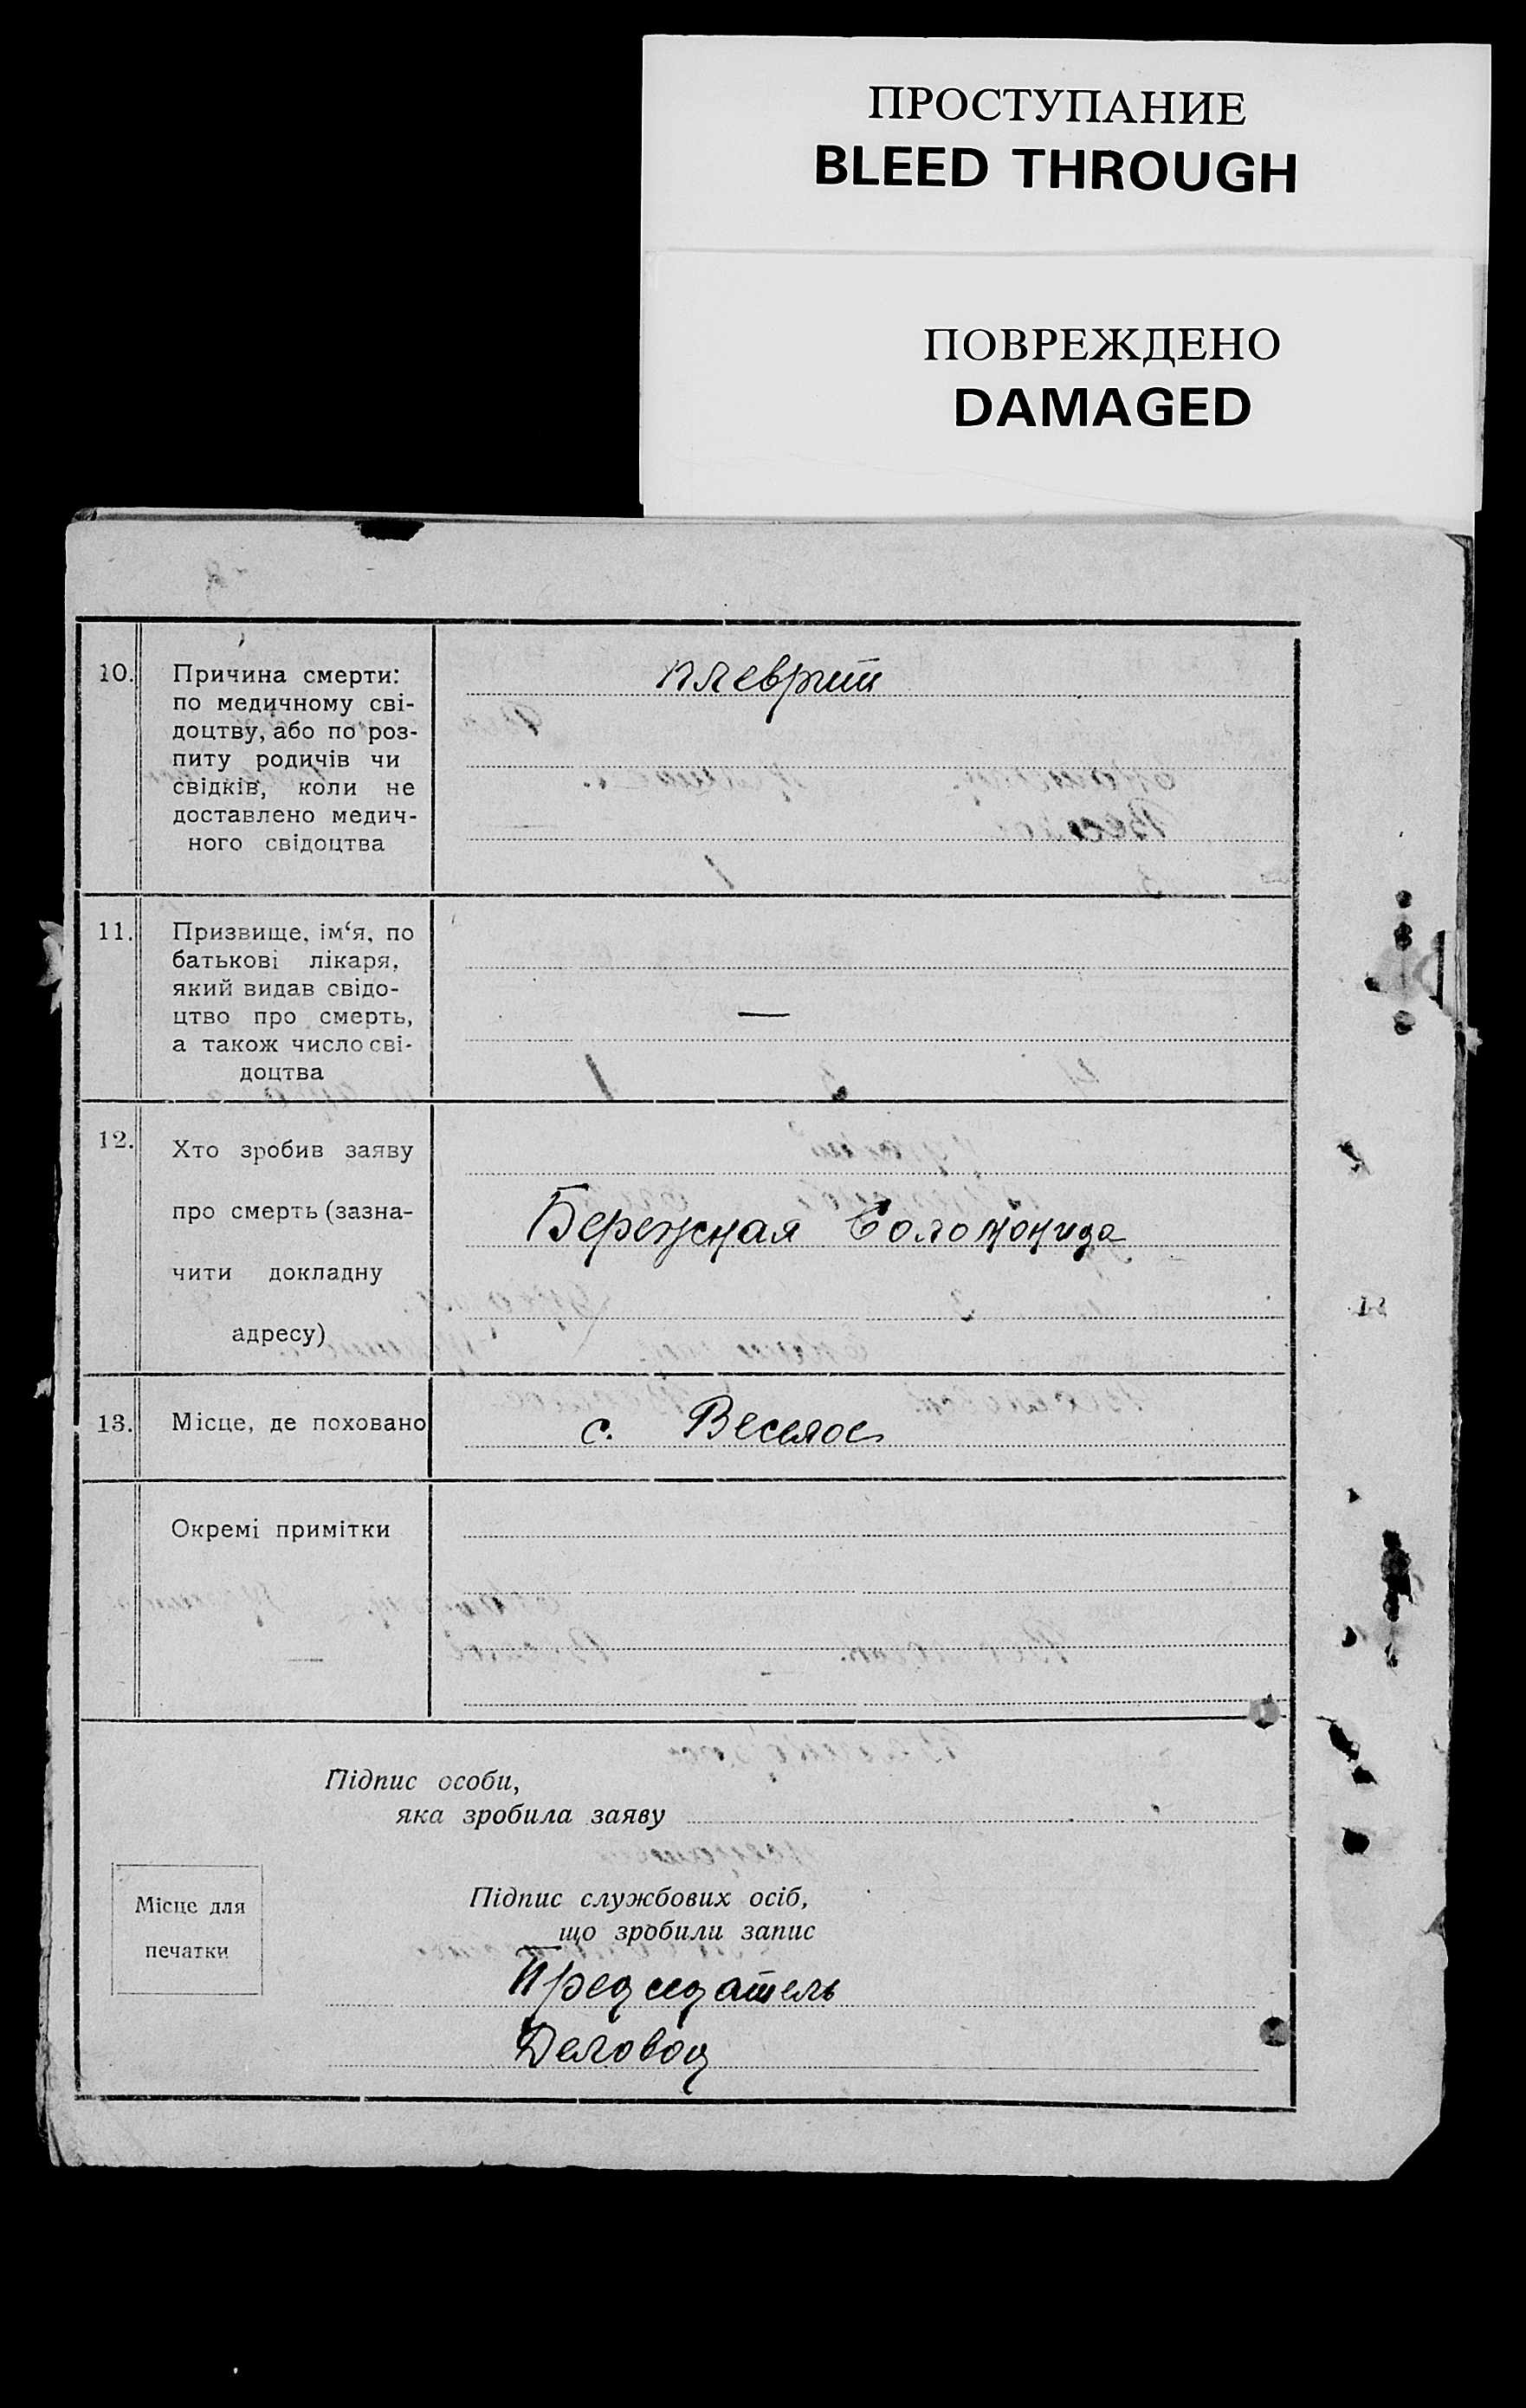 ПРОСТУПАНИЕ
BLEED THROUGH
ПОВРЕЖДЕНО
DAMAGED
10. Причина смерти:
по медичному сві-
доцтву, або по роз-
питу родичів чи
свідків, коли не
доставлено медич-
ного свідоцтва
плеврит
11. Призвище, ім‘я, по
батькові лікаря,
який видав свідо-
цтво про смерть,
а також число сві-
доцтва
—
12. Хто зробив заяву
про смерть (зазна-
чити докладну
адресу)
Бережная Соломонида
13. Місце, де поховано
с. Веселое
Окремі примітки
Підпис особи,
яка зробила заяву
Місце для
печатки
Підпис службових осіб,
що зробили запис
Председатель
Деловод